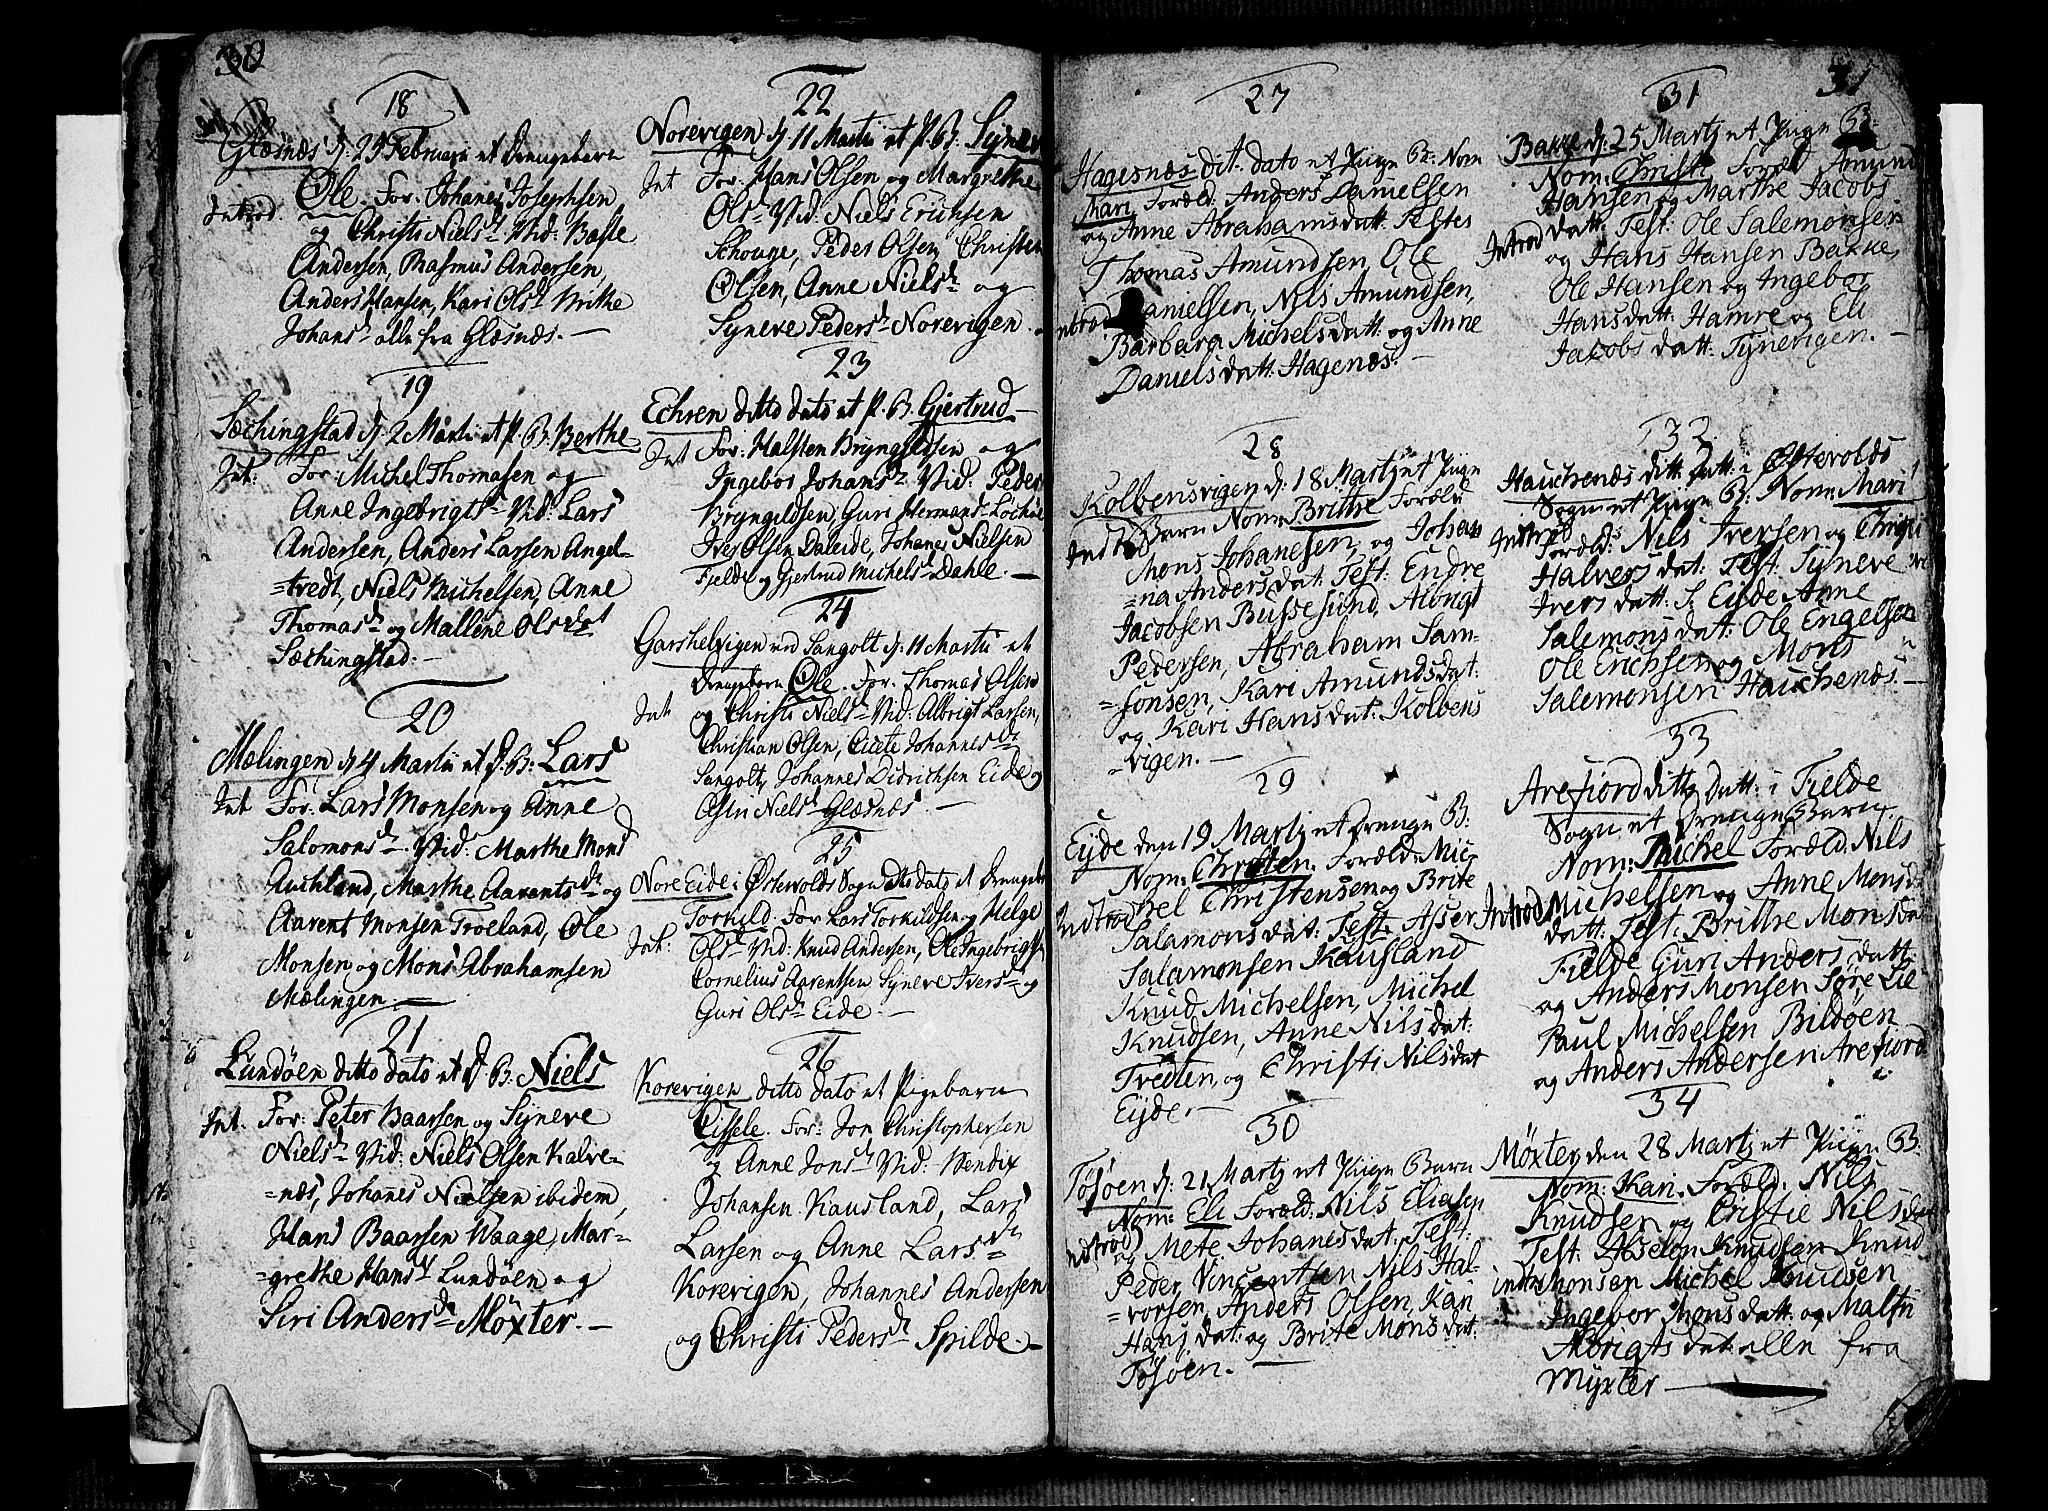 30
18
Glæsnæs d. 29 Februari et Drengebarn
Ole. For. Johanes Josephsen
Introd. og Christi Nielsd. Vid: Basle
Andersen, Rasmus Andersen
Anders Hansen, Kari Olsd. Brithe
Johansd. alle fra Glæsnæs. —
19
Sechingstad d. 2 Marti et P. B. Berthe
Int: For: Michel Thomasen og
Anne Ingebrigtsd. Vid: Lars
Andersen, Anders Larsen Angel-
=tvedt, Niels Michelsen, Anne
Thomasd. og Mallene Olsdat
Sechingstad. —
20
Mælingen d. 4 Marti et D. B. Lars
Int For: Lars Monsen og Anne
Salomonsd. Vid: Marthe Monsd
Auchland, Marthe Aarentsd. og
Aarent Monsen Troeland, Ole
Monsen og Mons Abrahamsen
Mælingen —
21
Lundøen ditto dato et D. B. Niels
Int. For: Peter Baarsen og Syneve
Nielsd. Vid: Niels Olsen Kalve-
=næs, Johanes Nielsen ibidem,
Hans Baarsen Waage, Mar-
=grethe Hansd Lundøen og
Siri Andersd. Møxter. —
22
Norevigen d. 11 Marti et P. B. Synev
Int For: Hans Olsen og Margrethe
Olsd. Vid: Niels Erichsen
Schouge, Peder Olsen, Christen
Olsen, Anne Nielsd. og
Syneve Pedersd. Norevigen. —
23
Echren ditto dato et P. B. Gjertrud —
Int For: Halsten Bryngeldsen og
Ingebor Johansd. Vid: Peder
Bryngeldsen, Guri Hermansd.
Iver Olsen Daleide, Johanes Nielsen
Fjelde og Gjertrud Michelsd. Dahle. —
24
Garshelvigen ved Sangolt d. 11 Martii et
Drengebarn Ole. For: Thomas Olsen
Int og Christi Nielsd. Vid: Albrigt Larsen,
Christian Olsen, Cicele Johannesd.
Sangolt, Johannes Didrichsen Eide og
Olsin Nielsd. Glæsnæs. —
25
Nore Eide i Østervolds Sogn dto dato et Drengeb
Torkild. For Lars Torkildsen og Helge
Int: Olsd. Vid: Knud Andersen, Ole Ingebrigts
Cornelius Aarentsen Syneve Iversd. og
Guri Olsd. Eide. —
26
Korevigen ditto dato et Pigebarn
Cissele. For: Jon Christophersen
og Anne Jonsd. Vid: Hendix
Johansen Kausland, Lars
Larsen og Anne Larsd.
Korevigen, Johannes Andersen
og Christi Pedersd. Spilde —
31
27
Hagesnæs dit: dato et Piige B: Nom
Mari Foræld: Anders Danielsen
og Anne Abrahamsdatt: Testes
Thomas Amundsen, Ole
Introd Danielsen, Nils Amundsen,
Barbara Michelsdatt: og Anne
Danielsdatt: Hagenæs. —
28
Kolbensvigen d: 18 Martz et Piige
Barn Nom: Brithe Foræld
Introd Mons Johanesen, og Johan
=na Andersdat: Test: Endre
Jacobsen Bussesund, Mongs
Pedersen, Abraham Sam-
=sonsen, Kari Amundsdat.
og Kari Hansdat: Kolbens
=vigen. —
29
Eyde den 19 Martz et Drenge B:
Nom: Christen. Foræld: Mic
Introd hel Christensen og Brite
Salamonsdat: Test: Asser
Salamonsen Kausland
Knud Michelsen, Michel
Knudsen, Anne Nilsdat:
Tredten, og Christi Nilsdat
Eyde. —
30
Tøsøen d: 21 Martz et Piige Barn
Nom: Eli Foræld: Nils Eliasen
Introd og Mete Johanesdat: Test:
Peder Vincentsen Nils Hal-
=vorsen, Anders Olsen, Kari
Hansdat: og Brite Monsdat:
Tøsøen. —
31
Bakke d: 25 Martz et Piige B:
Nom: Christi Foræld Amund
Hansen og Marthe Jacobs
Introd datt: Test: Ole Salemonsen
og Hans Hansen Bakke,
Ole Hansen og Ingebor
Hansdatt: Hamre og Eli
Jacobsdatt: Tynevigen. —
32
Hauchenæs ditt datt: i Østevolds
Sogn et Piige B: Nom: Mari
Introd Foræld: Nils Iversen og
Halversdat: Test: Syneve
Iversdatt: S. Eide Anne
Salemonsdat: Ole Engelsen
Ole Erichsen og Mons
Salemonsen Hauchenæs. —
33
Arefiord ditto datt: i Fielde
Sogn et Drenge Barn
Nom: Michel Foræld: Nils
Introd Michelsen og Anne Mons
datt: Test: Brithe Monsda
Fielde Guri Andersdatt:
og Anders Monsen Søre Lie
Paul Michelsen Bildøen
og Anders Andersen Arefiord
34
Møxter den 28 Martz et Piige B:
Nom: Kari. Foræld: Nils
Knudsen og Cristie Nilsdat
Test: Abselon Knudsen Knud
introd Monsen Michel Knudsen
Ingebor Monsdatt: og Malfri
Albrigtsdat: alle fra
Myxter —